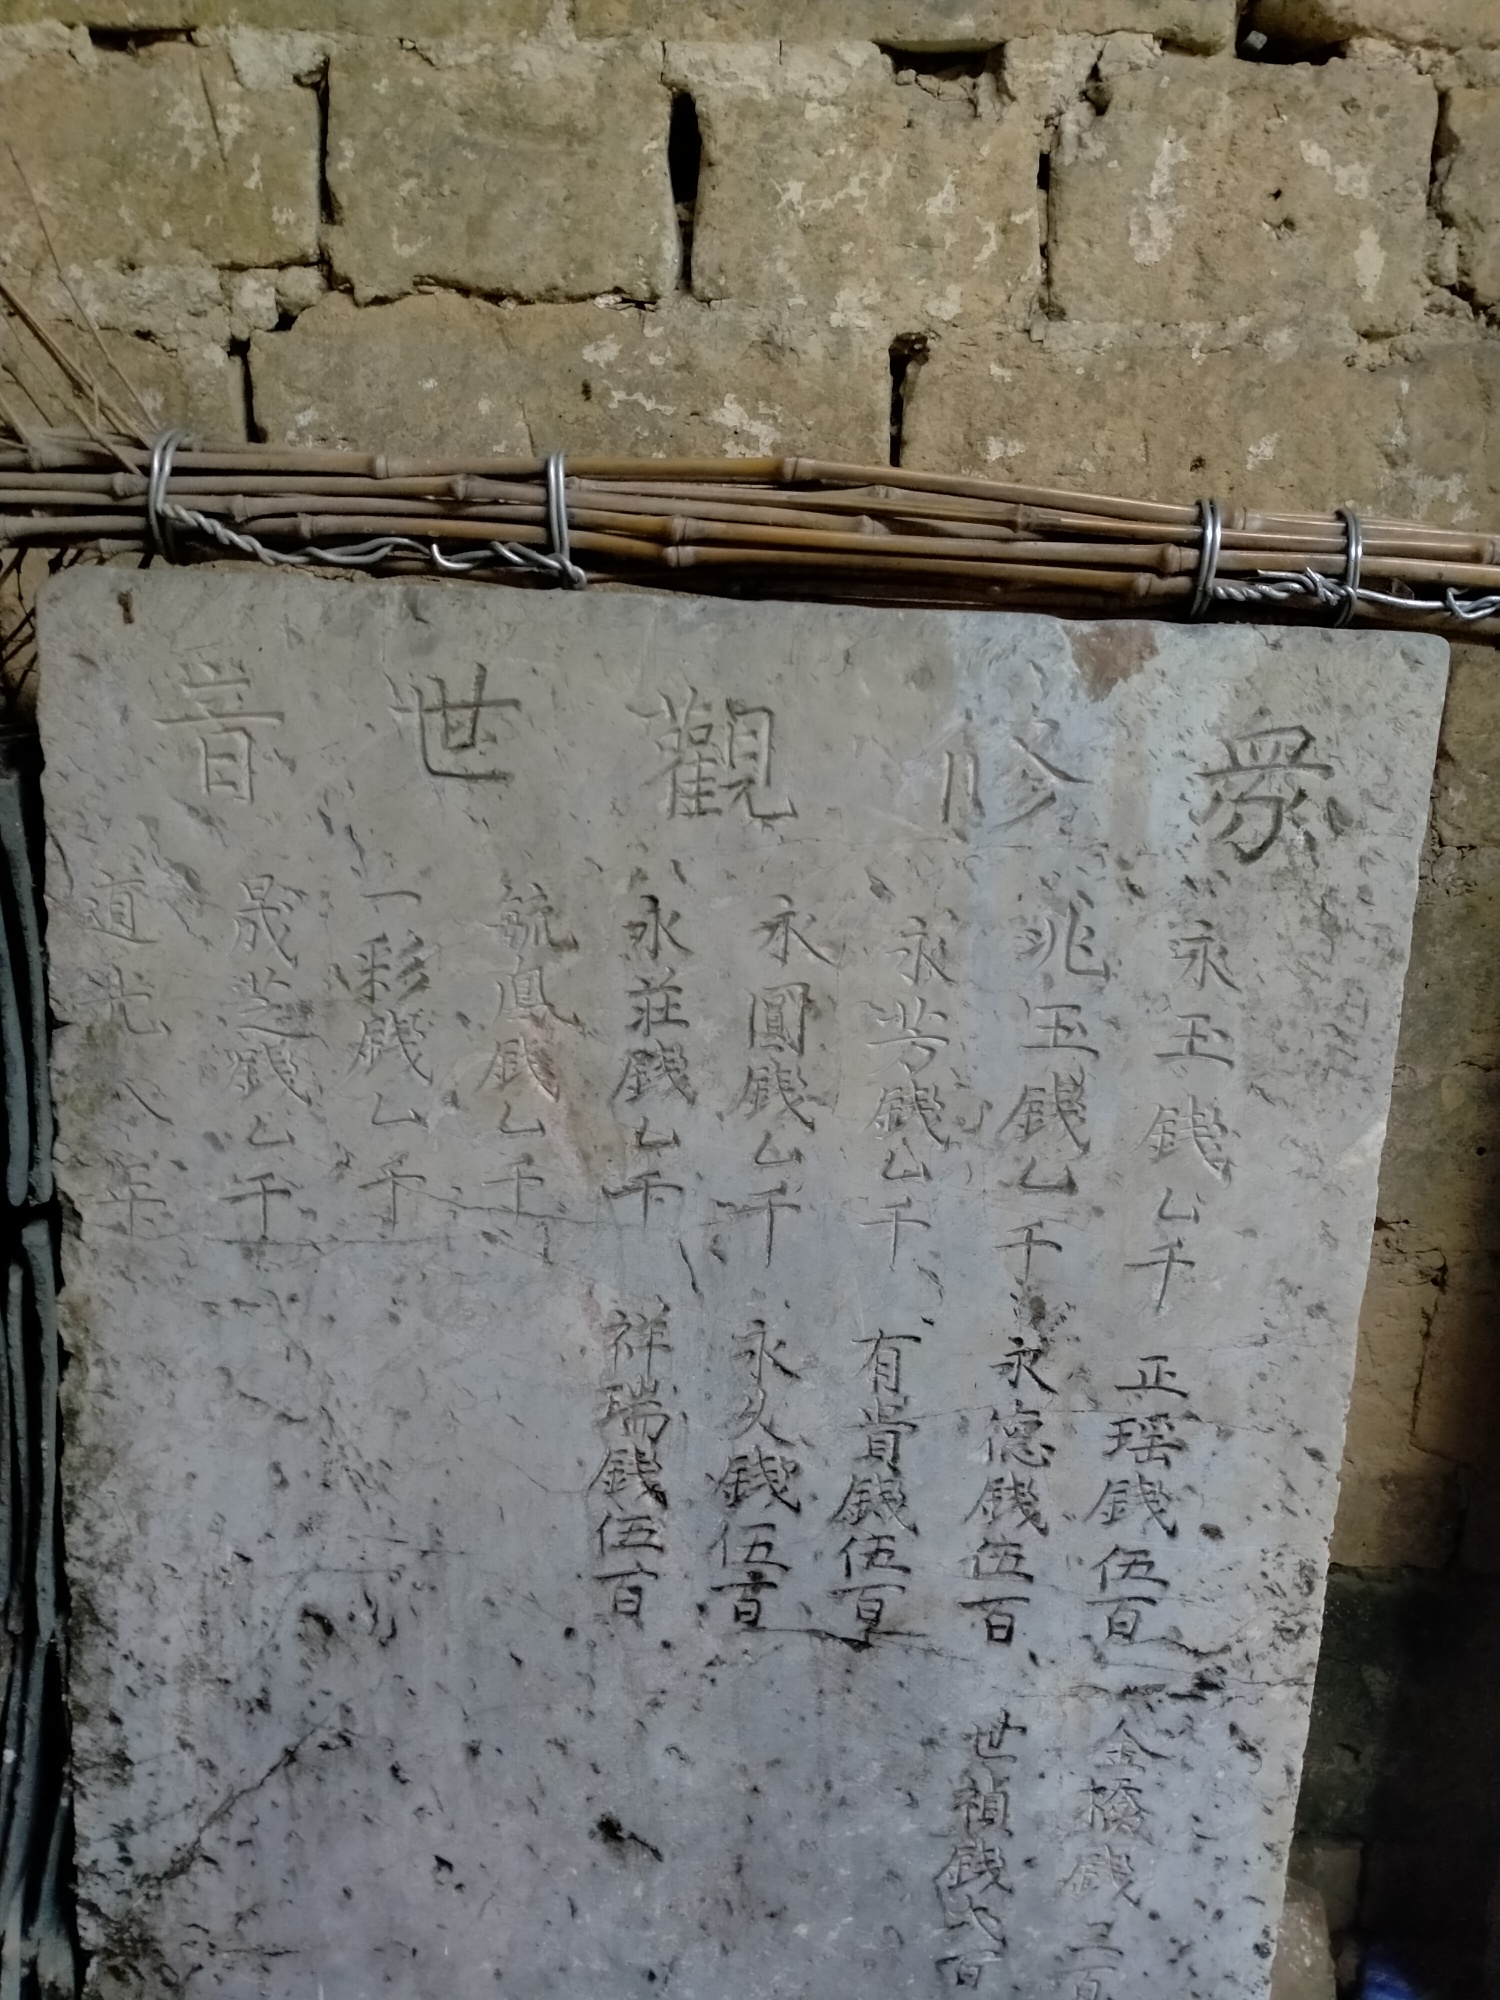 眾修觀世音
永玉錢乙千 正瑶錢伍百 金橋錢三百
兆玉錢乙千 永德錢伍百 世禎錢百
永芳錢乙千 有貴錢伍百
永圓錢乙千 永久錢伍百
永莊錢乙千 祥瑞錢伍百
毓鳳錢乙千
一彩錢乙千
晟芝錢乙千
道光八年